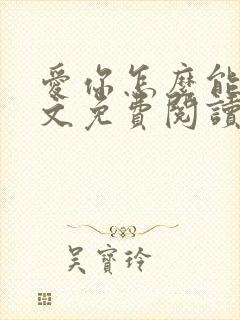 愛你怎麼能
文免費閱讀
吳寶玲